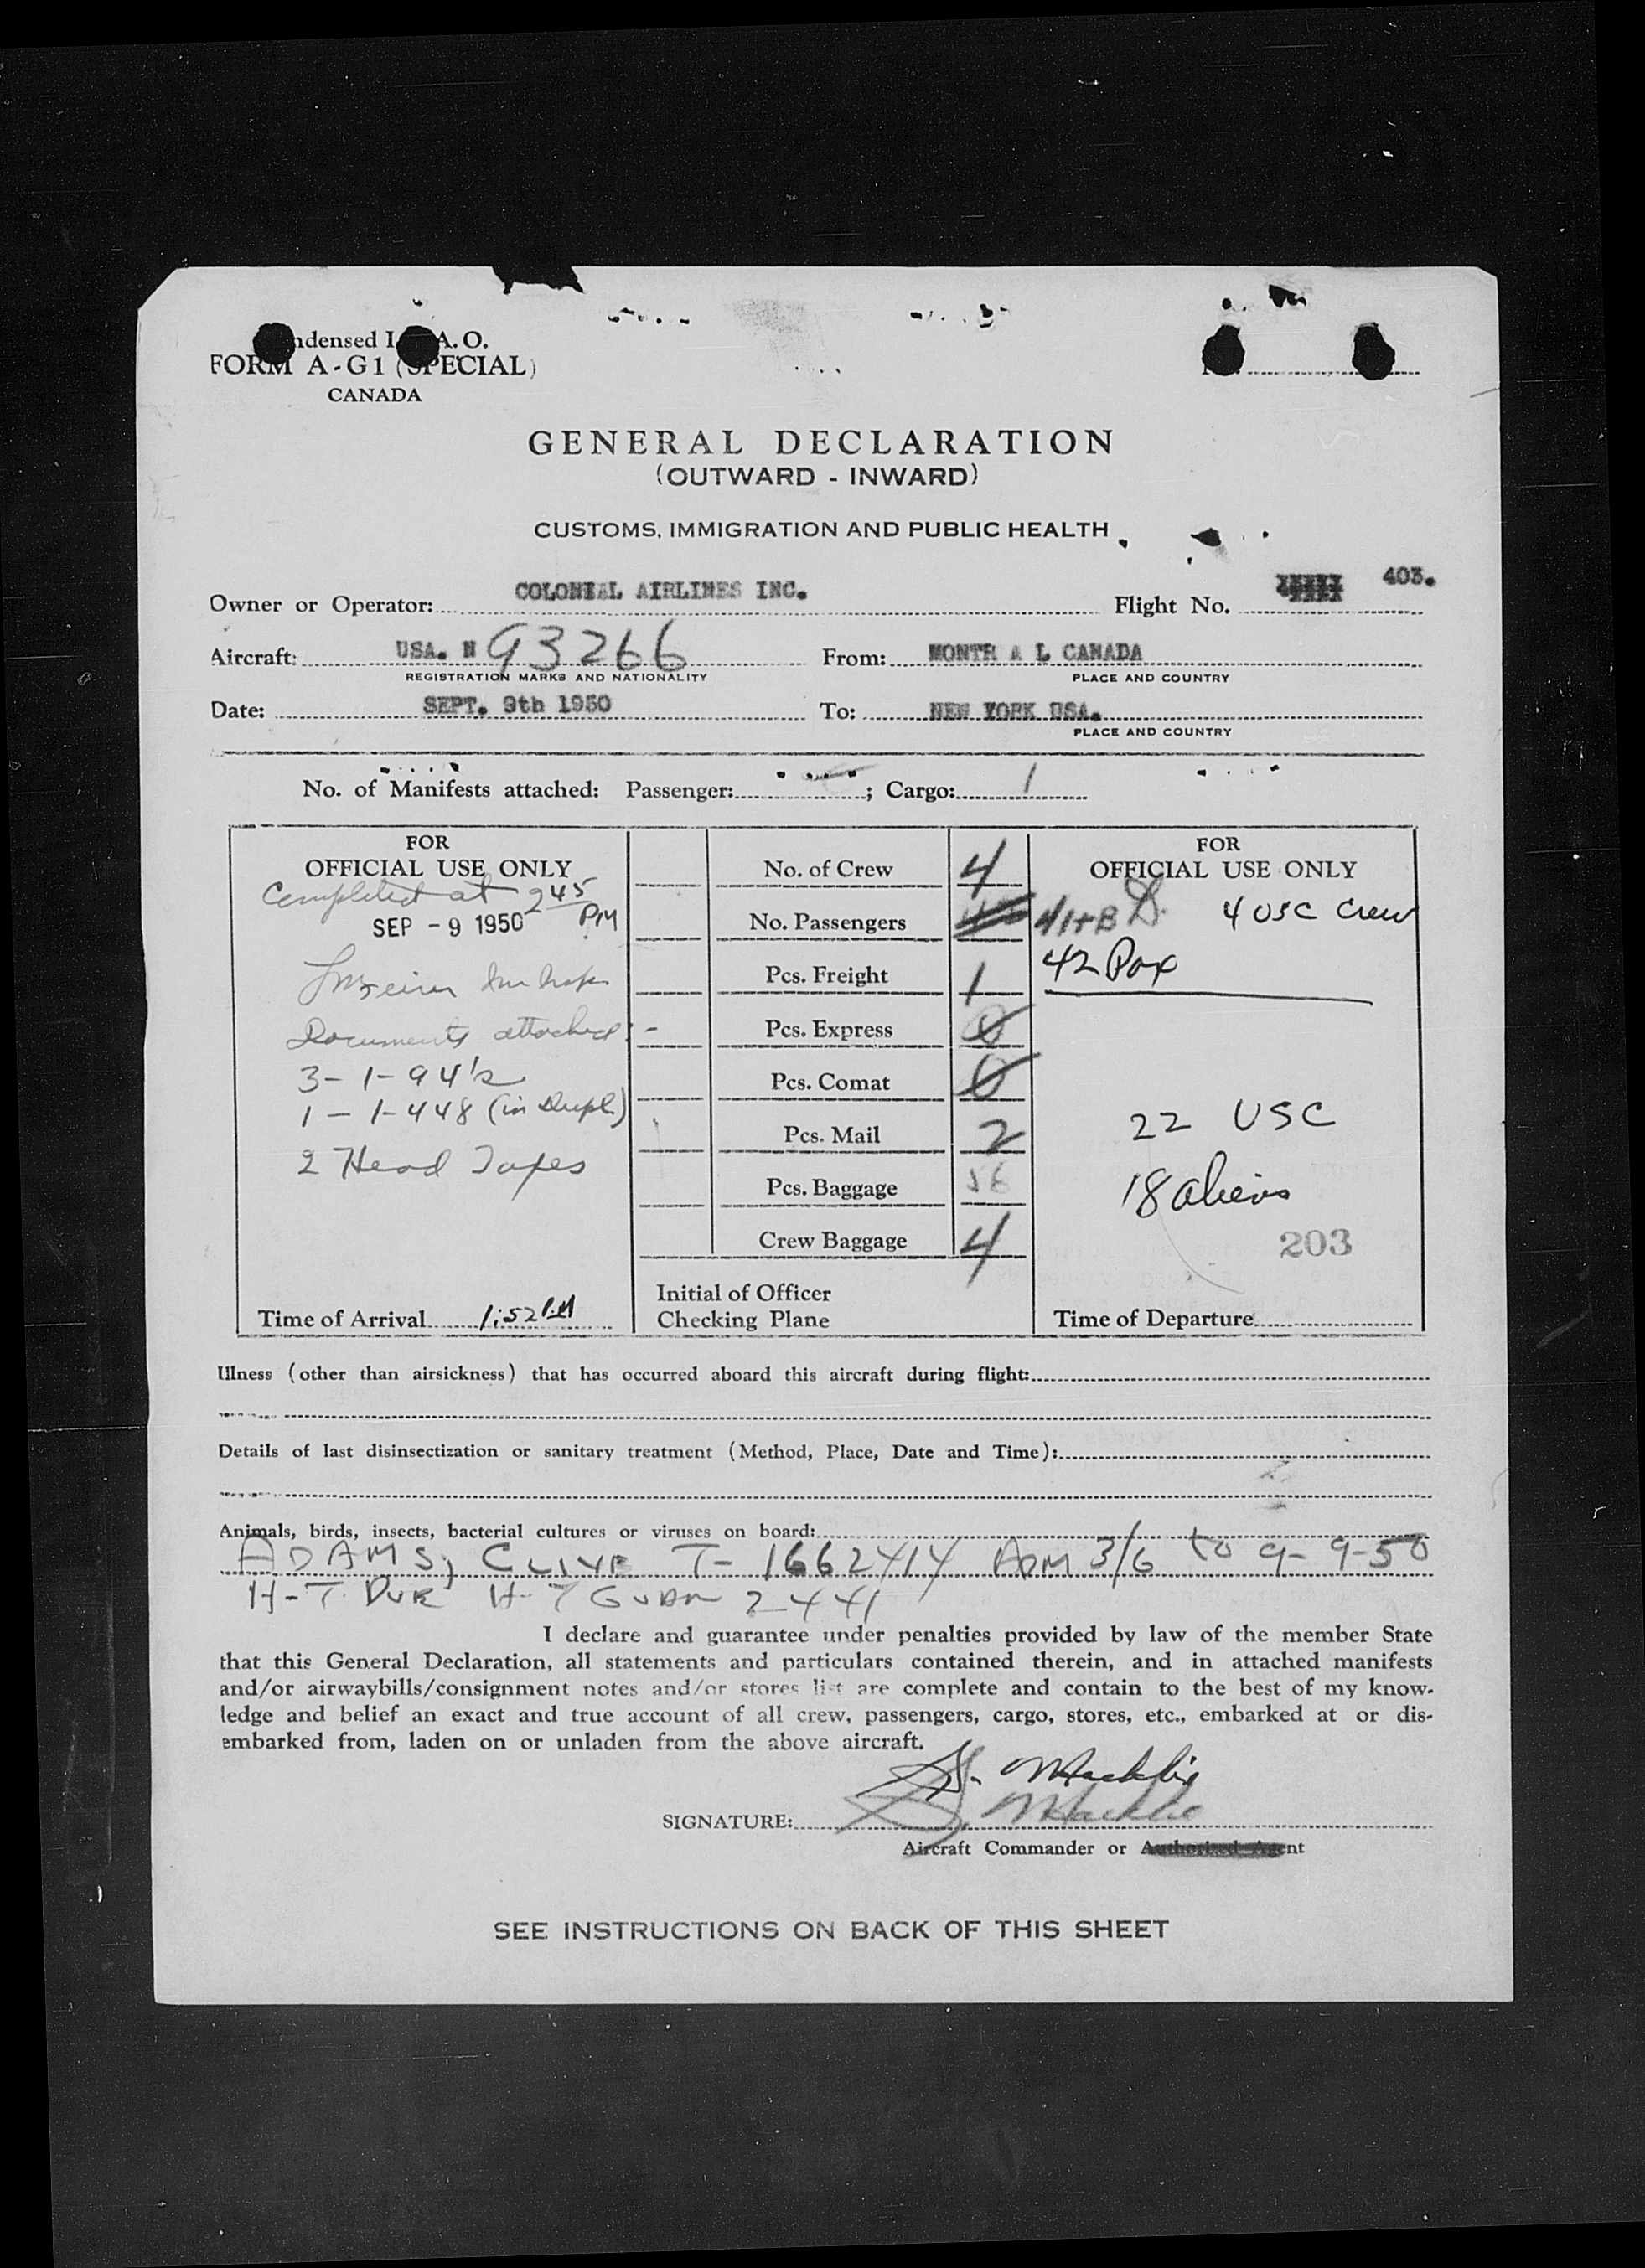 ndensed I A.O.
FORM A-G1 (SPECIAL)
CANADA
GENERAL DECLARATION
(OUTWARD - INWARD)
CUSTOMS, IMMIGRATION AND PUBLIC HEALTH
Owner or Operator: COLONIAL AIRLINES INC. Flight No. 403.
Aircraft: USA. N 93266 From: MONTR A L CANADA
REGISTRATION MARKS AND NATIONALITY PLACE AND COUNTRY
Date: SEPT. 9th 1950 To: NEW YORK USA.
PLACE AND COUNTRY
No. of Manifests attached: Passenger: ; Cargo: 1
FOR
OFFICIAL USE ONLY
Completed at 2 45 PM
SEP - 9 1950
Documents attached:-
3- 1- 94's
1 - 1-448 (in Dupl.)
2 Head Taxes
Time of Arrival 1:52 PM
No. of Crew 4
No. Passengers 41+B
Pcs. Freight 1
Pcs. Express 0
Pcs. Comat 0
Pcs. Mail 2
Pcs. Baggage 56
Crew Baggage 4
Initial of Officer
Checking Plane
FOR
OFFICIAL USE ONLY
4 USC Crew
42 Pax
22 USC
18 aliens
203
Time of Departure
Illness (other than airsickness) that has occurred aboard this aircraft during flight:
Details of last disinsectization or sanitary treatment (Method, Place, Date and Time):
Animals, birds, insects, bacterial cultures or viruses on board:
ADAMS, CLIVE T- 1662414 ADM 3/6 to 9-9-50
H-T DUE H-T GUAR 2441
I declare and guarantee under penalties provided by law of the member State
that this General Declaration, all statements and particulars contained therein, and in attached manifests
and/or airwaybills/consignment notes and/or stores list are complete and contain to the best of my know-
ledge and belief an exact and true account of all crew, passengers, cargo, stores, etc., embarked at or dis-
embarked from, laden on or unladen from the above aircraft.
SIGNATURE:
Aircraft Commander or Authorized Agent
SEE INSTRUCTIONS ON BACK OF THIS SHEET